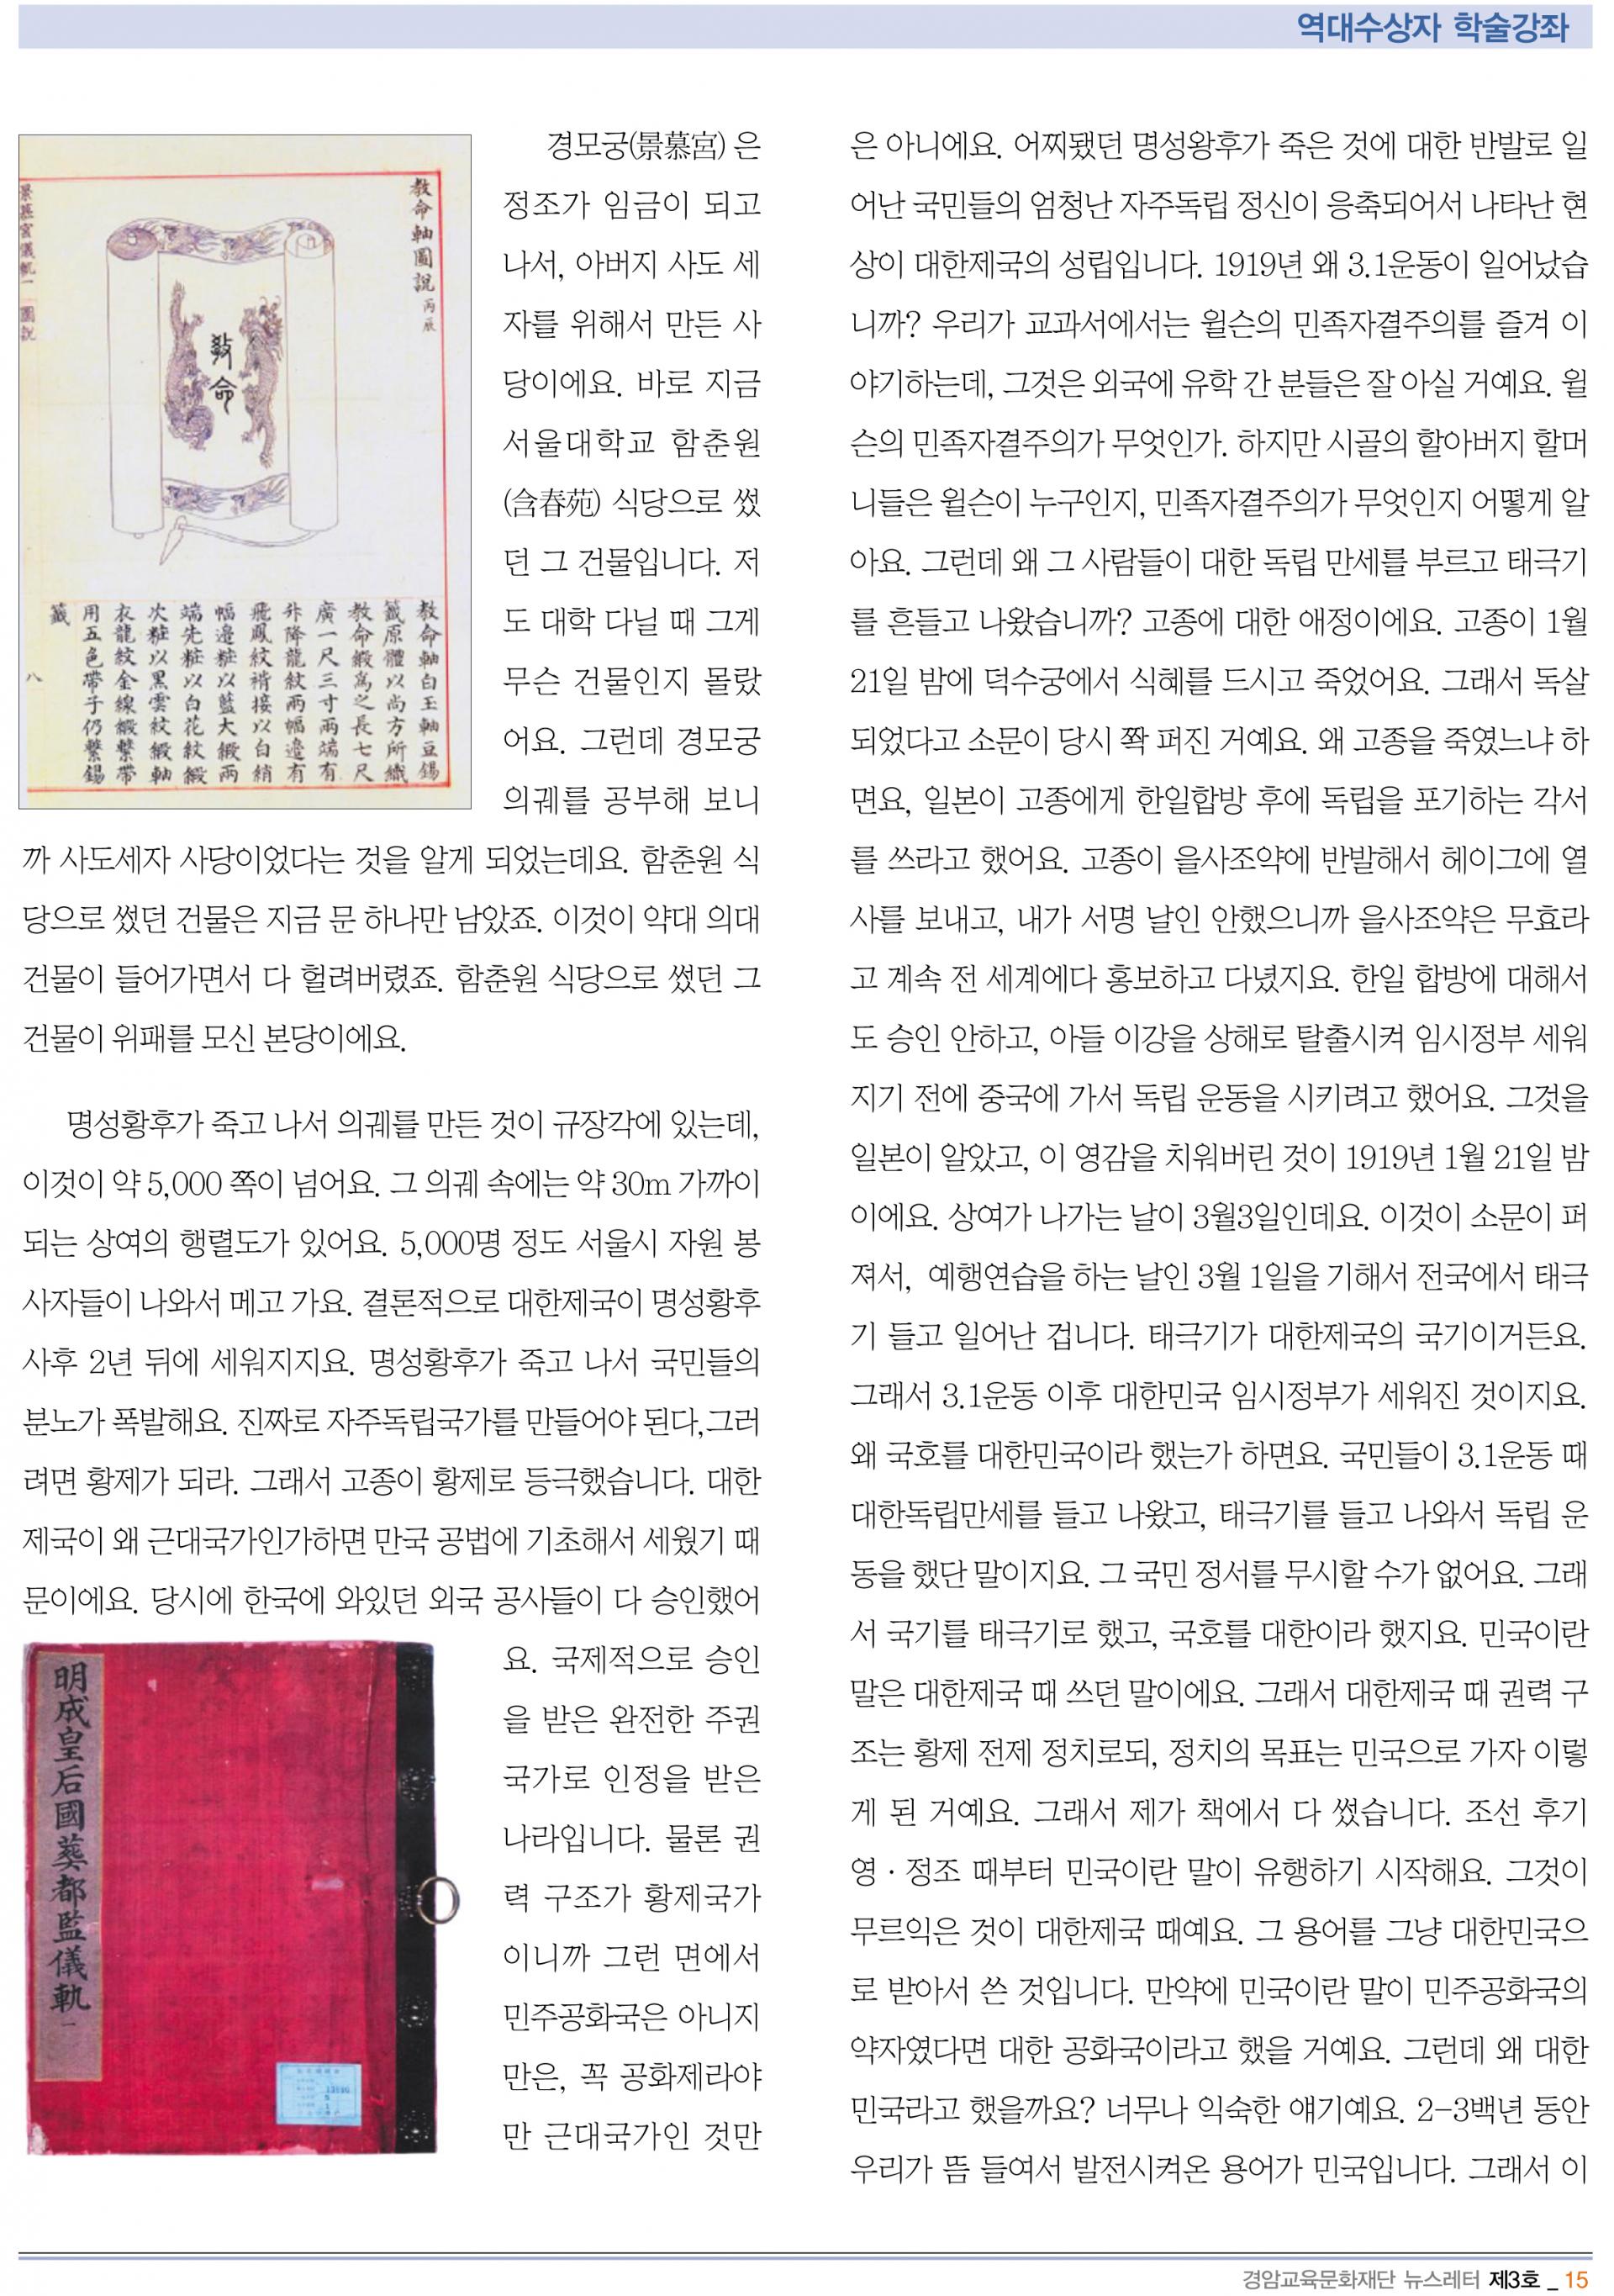 역대수상자 학술강좌
景慕宮儀軌一 圖說
教命軸圖說 丙辰
教命
教命軸白玉軸豆錫
籤原體以尚方所織
教命緞爲之長七尺
廣一尺三寸兩端有
升降龍紋兩幅邊有
飛鳳紋褙接以白綃
幅邊粧以藍大緞兩
端先粧以白花紋緞
次粧以黑雲紋緞軸
衣龍紋金線緞繫帶
用五色帶子仍繫錫
籤
八
경모궁(景慕宮) 은
정조가 임금이 되고
나서, 아버지 사도 세
자를 위해서 만든 사
당이에요. 바로 지금
서울대학교 함춘원
(含春苑) 식당으로 썼
던 그 건물입니다. 저
도 대학 다닐 때 그게
무슨 건물인지 몰랐
어요. 그런데 경모궁
의궤를 공부해 보니
까 사도세자 사당이었다는 것을 알게 되었는데요. 함춘원 식
당으로 썼던 건물은 지금 문 하나만 남았죠. 이것이 약대 의대
건물이 들어가면서 다 헐려버렸죠. 함춘원 식당으로 썼던 그
건물이 위패를 모신 본당이에요.
명성황후가 죽고 나서 의궤를 만든 것이 규장각에 있는데,
이것이 약 5,000 쪽이 넘어요. 그 의궤 속에는 약 30m 가까이
되는 상여의 행렬도가 있어요. 5,000명 정도 서울시 자원 봉
사자들이 나와서 메고 가요. 결론적으로 대한제국이 명성황후
사후 2년 뒤에 세워지지요. 명성황후가 죽고 나서 국민들의
분노가 폭발해요. 진짜로 자주독립국가를 만들어야 된다,그러
려면 황제가 되라. 그래서 고종이 황제로 등극했습니다. 대한
제국이 왜 근대국가인가하면 만국 공법에 기초해서 세웠기 때
문이에요. 당시에 한국에 와있던 외국 공사들이 다 승인했어
요. 국제적으로 승인
을 받은 완전한 주권
국가로 인정을 받은
나라입니다. 물론 권
력 구조가 황제국가
이니까 그런 면에서
민주공화국은 아니지
만은, 꼭 공화제라야
만 근대국가인 것만
明成皇后國葬都監儀軌 一
은 아니에요. 어찌됐던 명성왕후가 죽은 것에 대한 반발로 일
어난 국민들의 엄청난 자주독립 정신이 응축되어서 나타난 현
상이 대한제국의 성립입니다. 1919년 왜 3.1운동이 일어났습
니까? 우리가 교과서에서는 윌슨의 민족자결주의를 즐겨 이
야기하는데, 그것은 외국에 유학 간 분들은 잘 아실 거예요. 윌
슨의 민족자결주의가 무엇인가. 하지만 시골의 할아버지 할머
니들은 윌슨이 누구인지, 민족자결주의가 무엇인지 어떻게 알
아요. 그런데 왜 그 사람들이 대한 독립 만세를 부르고 태극기
를 흔들고 나왔습니까? 고종에 대한 애정이에요. 고종이 1월
21일 밤에 덕수궁에서 식혜를 드시고 죽었어요. 그래서 독살
되었다고 소문이 당시 쫙 퍼진 거예요. 왜 고종을 죽였느냐 하
면요, 일본이 고종에게 한일합방 후에 독립을 포기하는 각서
를 쓰라고 했어요. 고종이 을사조약에 반발해서 헤이그에 열
사를 보내고, 내가 서명 날인 안했으니까 을사조약은 무효라
고 계속 전 세계에다 홍보하고 다녔지요. 한일 합방에 대해서
도 승인 안하고, 아들 이강을 상해로 탈출시켜 임시정부 세워
지기 전에 중국에 가서 독립 운동을 시키려고 했어요. 그것을
일본이 알았고, 이 영감을 치워버린 것이 1919년 1월 21일 밤
이에요. 상여가 나가는 날이 3월3일인데요. 이것이 소문이 퍼
져서, 예행연습을 하는 날인 3월 1일을 기해서 전국에서 태극
기 들고 일어난 겁니다. 태극기가 대한제국의 국기이거든요.
그래서 3.1운동 이후 대한민국 임시정부가 세워진 것이지요.
왜 국호를 대한민국이라 했는가 하면요. 국민들이 3.1운동 때
대한독립만세를 들고 나왔고, 태극기를 들고 나와서 독립 운
동을 했단 말이지요. 그 국민 정서를 무시할 수가 없어요. 그래
서 국기를 태극기로 했고, 국호를 대한이라 했지요. 민국이란
말은 대한제국 때 쓰던 말이에요. 그래서 대한제국 때 권력 구
조는 황제 전제 정치로되, 정치의 목표는 민국으로 가자 이렇
게 된 거예요. 그래서 제가 책에서 다 썼습니다. 조선 후기
영 · 정조 때부터 민국이란 말이 유행하기 시작해요. 그것이
무르익은 것이 대한제국 때예요. 그 용어를 그냥 대한민국으
로 받아서 쓴 것입니다. 만약에 민국이란 말이 민주공화국의
약자였다면 대한 공화국이라고 했을 거예요. 그런데 왜 대한
민국라고 했을까요? 너무나 익숙한 얘기예요. 2-3백년 동안
우리가 뜸 들여서 발전시켜온 용어가 민국입니다. 그래서 이
경암교육문화재단 뉴스레터 제3호 _ 15